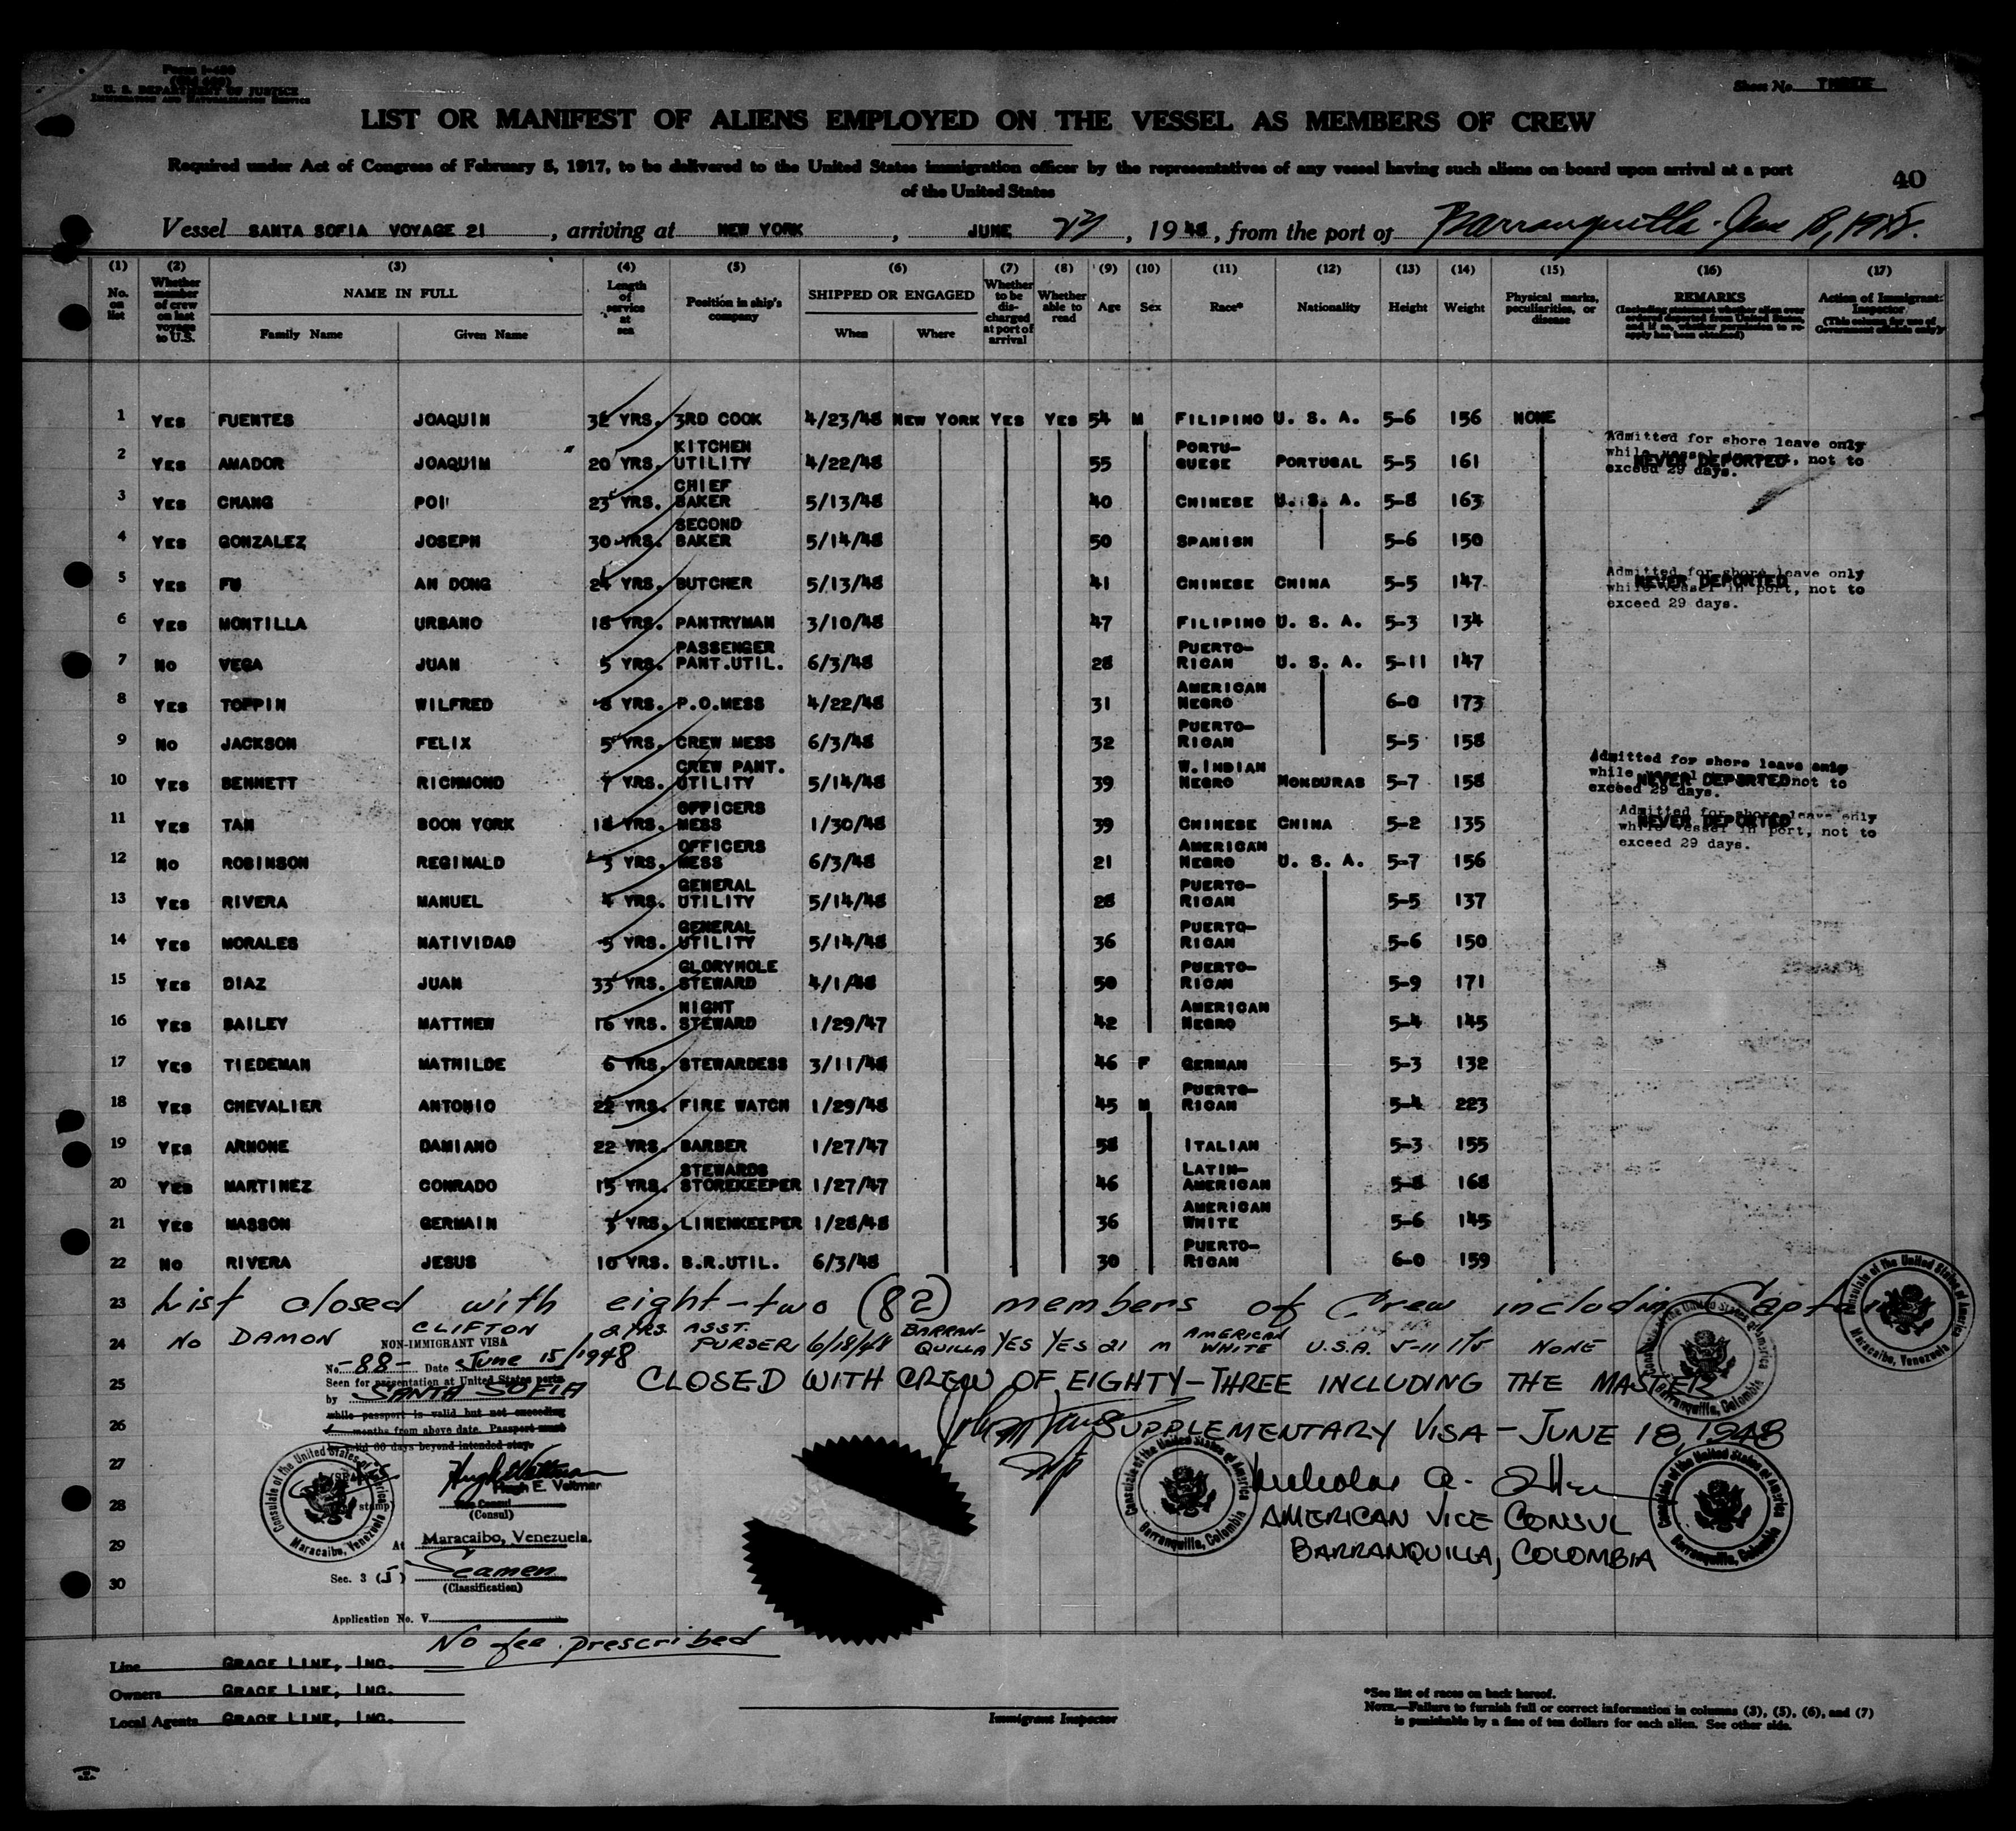 Form I-480
U. S. DEPARTMENT OF JUSTICE
IMMIGRATION AND NATURALIZATION SERVICE
Sheet No. THREE
LIST OR MANIFEST OF ALIENS EMPLOYED ON THE VESSEL AS MEMBERS OF CREW
Required under Act of Congress of February 5, 1917, to be delivered to the United States immigration officer by the representatives of any vessel having such aliens on board upon arrival at a port
of the United States
40
Vessel SANTA SOFIA VOYAGE 21, arriving at NEW YORK, JUNE 23, 1948, from the port of Barranquilla - June 18, 1948.
(1) No. on list (2) Whether member of crew on last voyage to U.S. (3) NAME IN FULL Family Name Given Name (4) Length of service at sea (5) Position in ship's company (6) SHIPPED OR ENGAGED When Where (7) Whether to be discharged at port of arrival (8) Whether able to read (9) Age (10) Sex (11) Race* (12) Nationality (13) Height (14) Weight (15) Physical marks, peculiarities, or disease (16) REMARKS (Including statement whether alien ever ordered deported from United States, and if so, whether permission to reapply has been obtained) (17) Action of Immigrant Inspector (This column for use of Government officials only)
1 YES FUENTES JOAQUIN 32 YRS. 3RD COOK 4/23/48 NEW YORK YES YES 54 M FILIPINO U. S. A. 5-6 156 NONE
2 YES AMADOR JOAQUIM 20 YRS. KITCHEN UTILITY 4/22/48 55 PORTU-GUESE PORTUGAL 5-5 161 NEVER DEPORTED Admitted for shore leave only while vessel in port, not to exceed 29 days.
3 YES CHANG POI 23 YRS. CHIEF BAKER 5/13/48 40 CHINESE U. S. A. 5-8 163
4 YES GONZALEZ JOSEPH 30 YRS. SECOND BAKER 5/14/48 50 SPANISH 5-6 150
5 YES FU AH DONG 24 YRS. BUTCHER 5/13/48 41 CHINESE CHINA 5-5 147 NEVER DEPORTED Admitted for shore leave only while vessel in port, not to exceed 29 days.
6 YES MONTILLA URBANO 18 YRS. PANTRYMAN 3/10/48 47 FILIPINO U. S. A. 5-3 134
7 NO VEGA JUAN 5 YRS. PASSENGER PANT.UTIL. 6/3/48 28 PUERTO-RICAN U. S. A. 5-11 147
8 YES TOPPIN WILFRED 8 YRS. P.O.MESS 4/22/48 31 AMERICAN NEGRO 6-0 173
9 NO JACKSON FELIX 5 YRS. CREW MESS 6/3/48 32 PUERTO-RICAN 5-5 158
10 YES BENNETT RICHMOND 7 YRS. CREW PANT. UTILITY 5/14/48 39 W.INDIAN NEGRO HONDURAS 5-7 158 NEVER DEPORTED Admitted for shore leave only while vessel not to exceed 29 days.
11 YES TAN BOON YORK 18 YRS. OFFICERS MESS 1/30/48 39 CHINESE CHINA 5-2 135 NEVER DEPORTED Admitted for shore leave only while vessel in port, not to exceed 29 days.
12 NO ROBINSON REGINALD 3 YRS. OFFICERS MESS 6/3/48 21 AMERICAN NEGRO U. S. A. 5-7 156
13 YES RIVERA MANUEL 4 YRS. GENERAL UTILITY 5/14/48 28 PUERTO-RICAN 5-5 137
14 YES MORALES NATIVIDAD 5 YRS. GENERAL UTILITY 5/14/48 36 PUERTO-RICAN 5-6 150
15 YES DIAZ JUAN 33 YRS. GLORYHOLE STEWARD 4/1/48 50 PUERTO-RICAN 5-9 171
16 YES BAILEY MATTHEW 16 YRS. NIGHT STEWARD 1/29/47 42 AMERICAN NEGRO 5-4 145
17 YES TIEDEMAN MATHILDE 6 YRS. STEWARDESS 3/11/48 46 F GERMAN 5-3 132
18 YES CHEVALIER ANTONIO 22 YRS. FIRE WATCH 1/29/48 45 M PUERTO-RICAN 5-4 223
19 YES ARNONE DAMIANO 22 YRS. BARBER 1/27/47 58 ITALIAN 5-3 155
20 YES MARTINEZ CONRADO 15 YRS. STEWARDS STOREKEEPER 1/27/47 46 LATIN-AMERICAN 5-8 168
21 YES MASSON GERMAIN 3 YRS. LINENKEEPER 1/28/48 36 AMERICAN WHITE 5-6 145
22 NO RIVERA JESUS 10 YRS. B.R.UTIL. 6/3/48 30 PUERTO-RICAN 6-0 159
23 List closed with eight-two (82) members of Crew including Captain
24 NO DAMON CLIFTON 2 YRS. ASST. PURSER 6/18/48 BARRAN-QUILLA YES YES 21 M AMERICAN WHITE U.S.A. 5-11 175 NONE
NON-IMMIGRANT VISA
No. -88- Date June 15/1948
25 CLOSED WITH CREW OF EIGHTY-THREE INCLUDING THE MASTER
Seen for presentation at United States ports
by SANTA SOFIA
while passport is valid but not exceeding
26 SUPPLEMENTARY VISA - JUNE 18, 1948
months from above date. Passport must
be valid 60 days beyond intended stay.
27
Hugh E. Veltman
Vice Consul
28 (Consul)
AMERICAN VICE CONSUL
29 At Maracaibo, Venezuela.
BARRANQUILLA, COLOMBIA
Sec. 3 (5) Seamen
(Classification)
30
Application No. V
No fee prescribed
Consulate of the United States of America Maracaibo, Venezuela
Consulate of the United States of America Barranquilla, Colombia
Consulate of the United States of America Barranquilla, Colombia
Consulate of the United States of America Barranquilla, Colombia
Consulate of the United States of America Maracaibo, Venezuela
Line GRACE LINE, INC.
Owners GRACE LINE, INC.
Local Agents GRACE LINE, INC.
Immigrant Inspector
*See list of races on back hereof.
NOTE.—Failure to furnish full or correct information in columns (3), (5), (6), and (7)
is punishable by a fine of ten dollars for each alien. See other side.